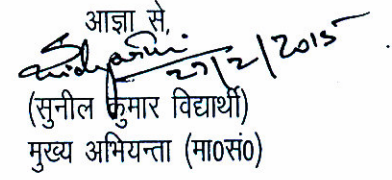 आज्ञा से,
27/2/2015
(सुनील कुमार विद्यार्थी)
मुख्य अभियन्ता (मा0सं0)